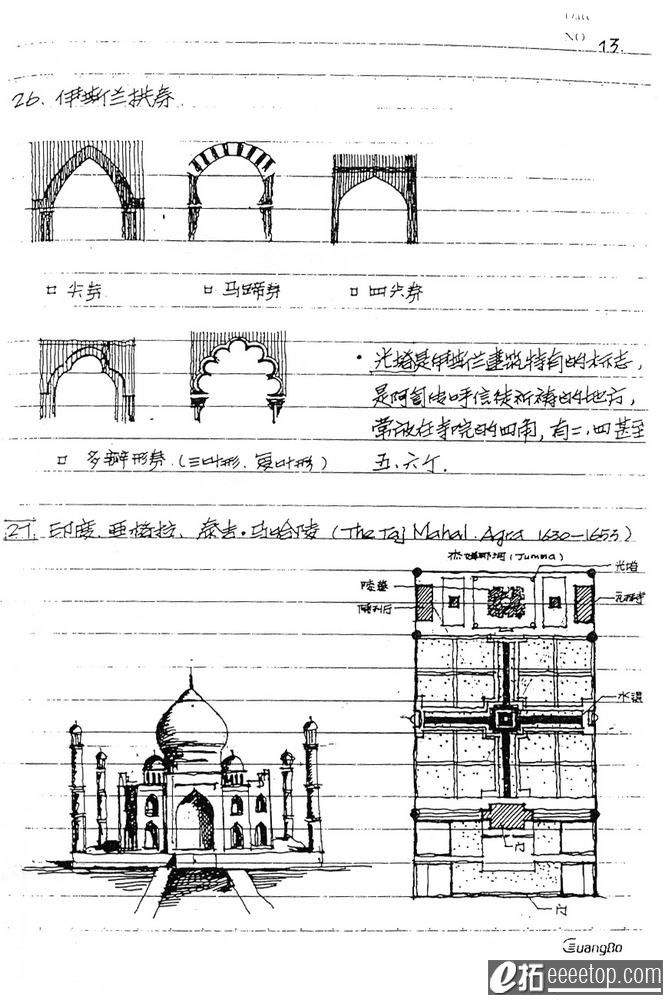 Date
NO 13.
26. 伊斯兰拱券
尖券
马蹄券
四尖券
· 光塔是伊斯兰建筑特有的标志，
是阿訇传呼信徒祈祷的地方，
常设在寺院的四角，有二、四甚至
五、六个.
多瓣形券.（三叶形.复叶形）
27. 印度.亚格拉、泰吉·马哈陵（The Taj Mahal. Agra 1630—1653）
(Jumna)
光塔
陵墓
水渠
门
门
GuangBo
e拓 eeeetop.com